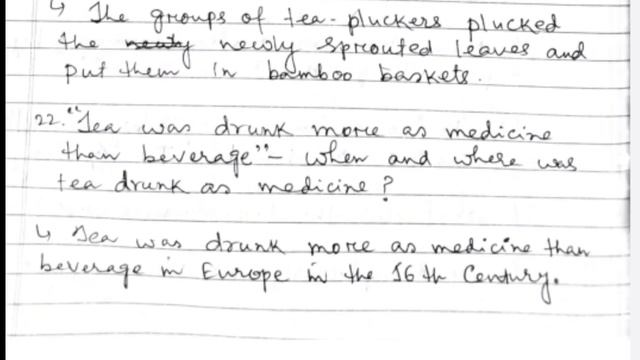 ↳ The groups of tea-pluckers plucked
the newly newly sprouted leaves and
put them in bamboo baskets.
22. "Tea was drunk more as medicine
than beverage" - when and where was
tea drunk as medicine?
↳ Tea was drunk more as medicine than
beverage in Europe in the 16th Century.